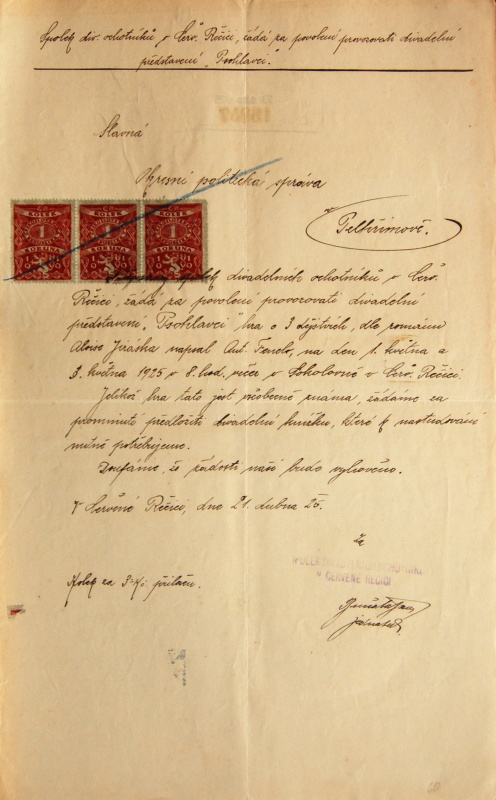 Spolek div. ochotníků v Červ. Řečici, žádá za povolení provozovati divadelní
představení „Psohlavci".
Slavná
Okresní politická správa
v
Pelhřimově.
KOLEK
1
KORUNA
KOLEK
1
KORUNA
KOLEK
1
KORUNA
spolek divadelních ochotníků v Červ.
Řečici, žádá za povolení provozovati divadelní
představení „Psohlavci" hra o 3 dějstvích, dle románu
Aloise Jiráska napsal Ant. Fencl, na den 1. května a
3. května 1925 v 8. hod. večer v Sokolovně v Červ. Řečici.
Jelikož hra tato jest všeobecně známa, žádáme za
prominutí předložiti divadelní knížku, které k nastudování
nutně potřebujeme.
Doufáme, že žádosti naší bude vyhověno.
V Červené Řečici, dne 21. dubna 25.
Za
SPOLEK DIVADELNÍCH OCHOTNÍKŮ
V ČERVENÉ ŘEČICI
Kolek za 3 Kč přiložen.
jednatel.